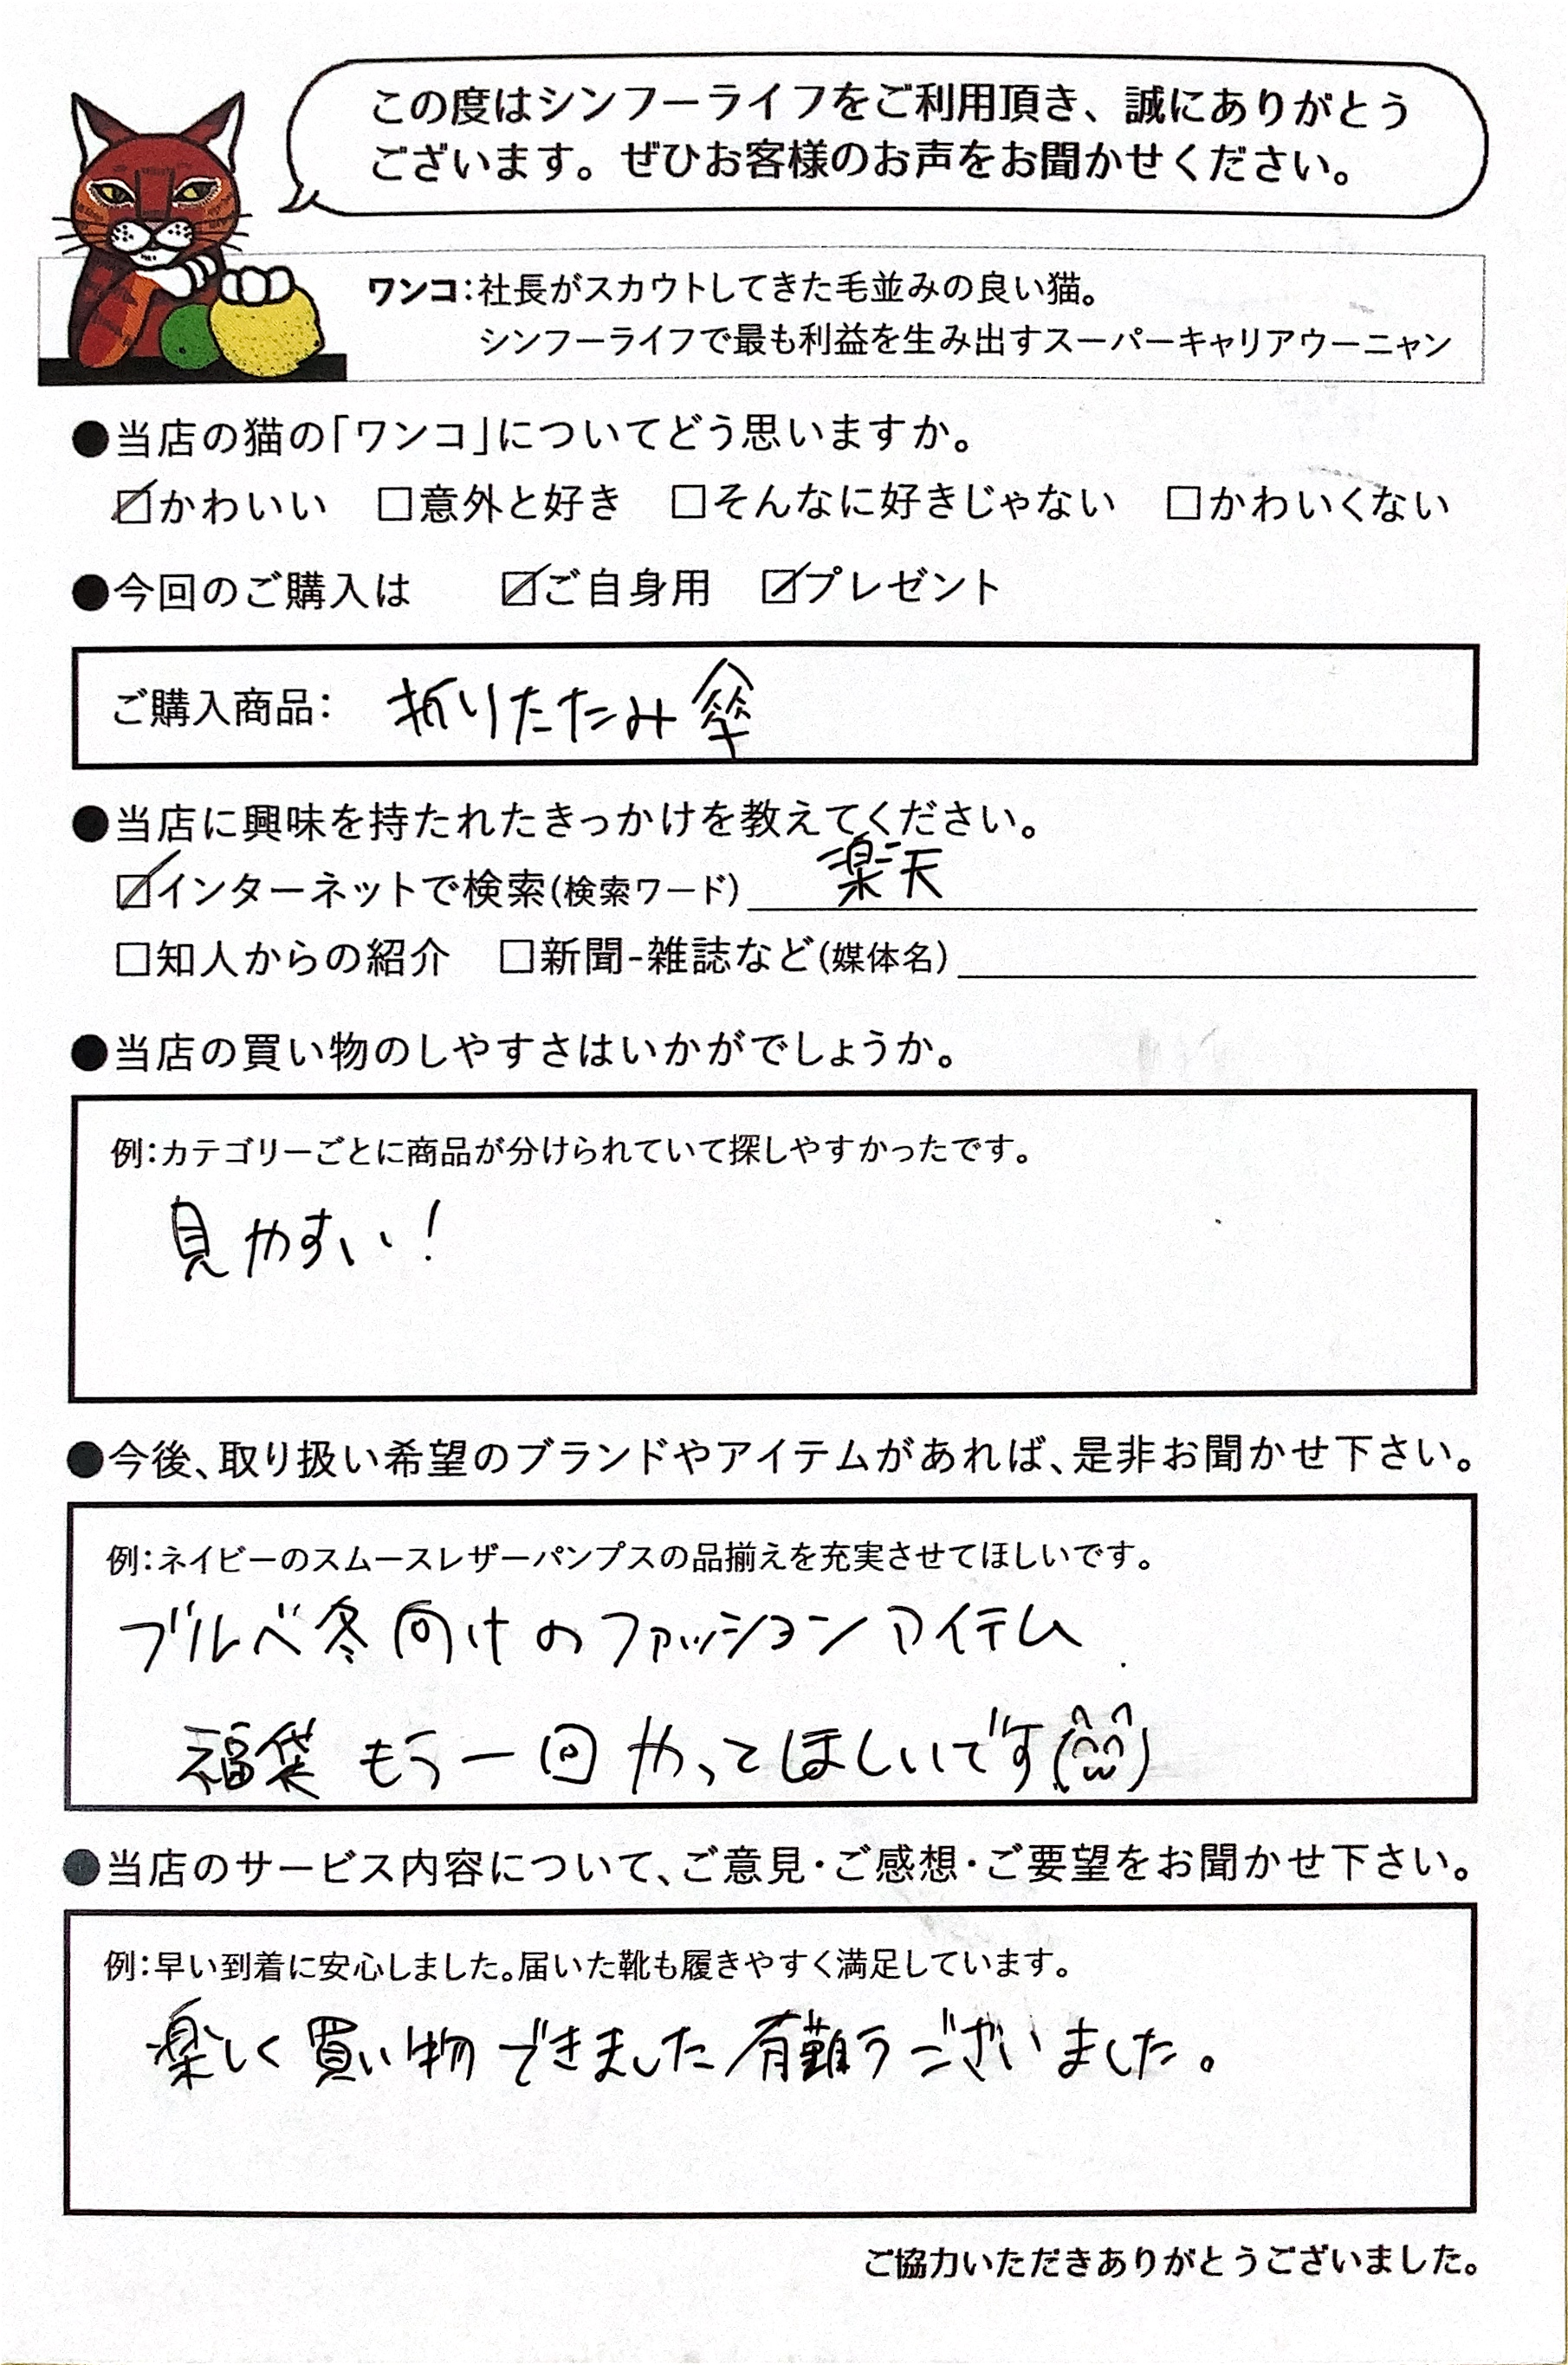 この度はシンフーライフをご利用頂き、誠にありがとう
ございます。ぜひお客様のお声をお聞かせください。
ワンコ：社長がスカウトしてきた毛並みの良い猫。
シンフーライフで最も利益を生み出すスーパーキャリアウーニャン
●当店の猫の「ワンコ」についてどう思いますか。
☑かわいい □意外と好き □そんなに好きじゃない □かわいくない
●今回のご購入は ☑ご自身用 ☑プレゼント
ご購入商品： 折りたたみ傘
●当店に興味を持たれたきっかけを教えてください。
☑インターネットで検索(検索ワード) 楽天
□知人からの紹介 □新聞-雑誌など(媒体名)
●当店の買い物のしやすさはいかがでしょうか。
例：カテゴリーごとに商品が分けられていて探しやすかったです。
見やすい！
●今後、取り扱い希望のブランドやアイテムがあれば、是非お聞かせ下さい。
例：ネイビーのスムースレザーパンプスの品揃えを充実させてほしいです。
ブルべ冬向けのファッションアイテム
福袋もう一回やってほしいです
●当店のサービス内容について、ご意見・ご感想・ご要望をお聞かせ下さい。
例：早い到着に安心しました。届いた靴も履きやすく満足しています。
楽しく買い物できました有難うございました。
ご協力いただきありがとうございました。